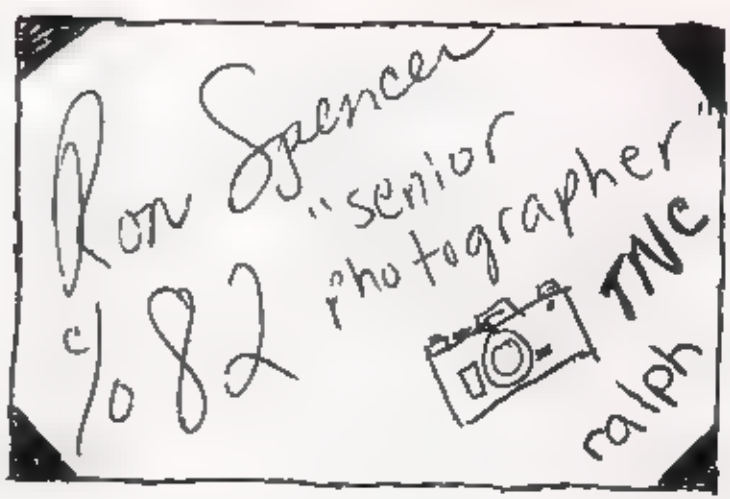 Ron Spencer
c/o 82
"senior
photographer
TNC
ralph